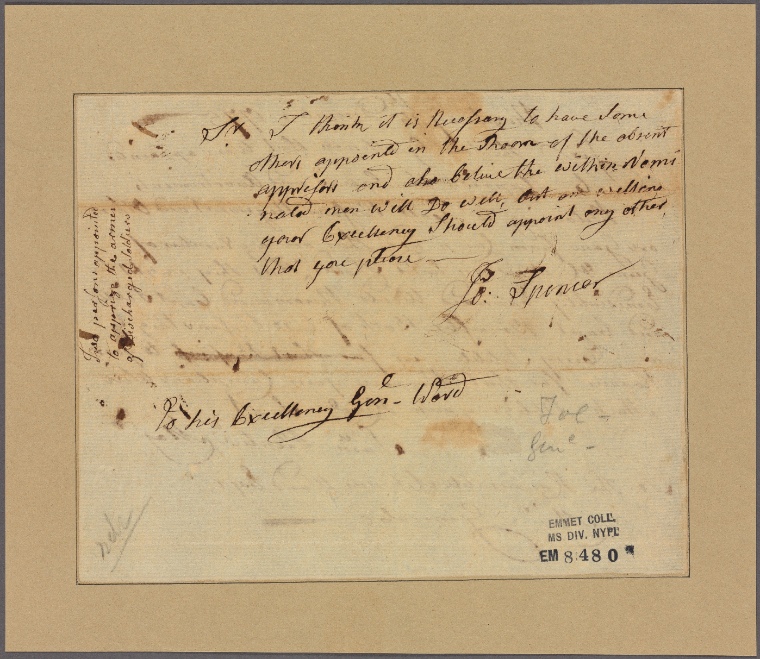 Sr I think it is Necessary to have Some
others appointed in the Room of the absent
apprisers and also belive the within Nomi
nated men will Do well, but am willing
your Excellency Should appoint any other
that you please —
Jo: Spencer
To his Excellency Genl Ward
Two persons appointed
to apprize the armes
of discharged soldiers
Genl
EMMET COLL.
MS DIV. NYPL
EM 8480